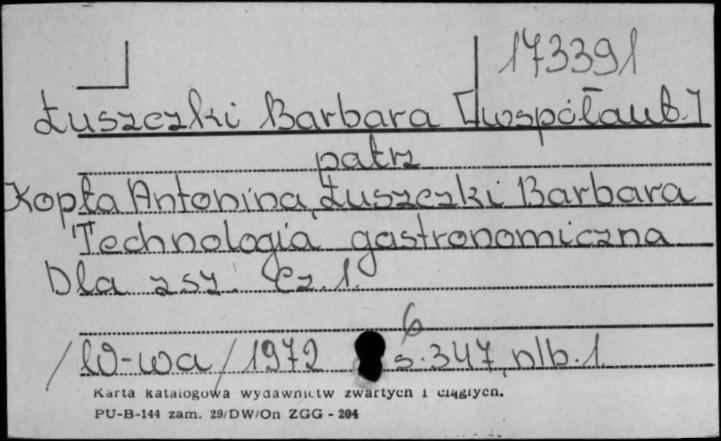 173391
Łuszczki Barbara [współaut.]
patrz
Kopta Antonina, Łuszczki Barbara
Technologia gastronomiczna
Dla zsz. Cz. 1.
6
/W-wa/ 1972 s. 347, nlb. 1
Karta katalogowa wydawnictw zwartych i ciągłych.
PU-B-144 zam. 29/DW/On ZGG - 204